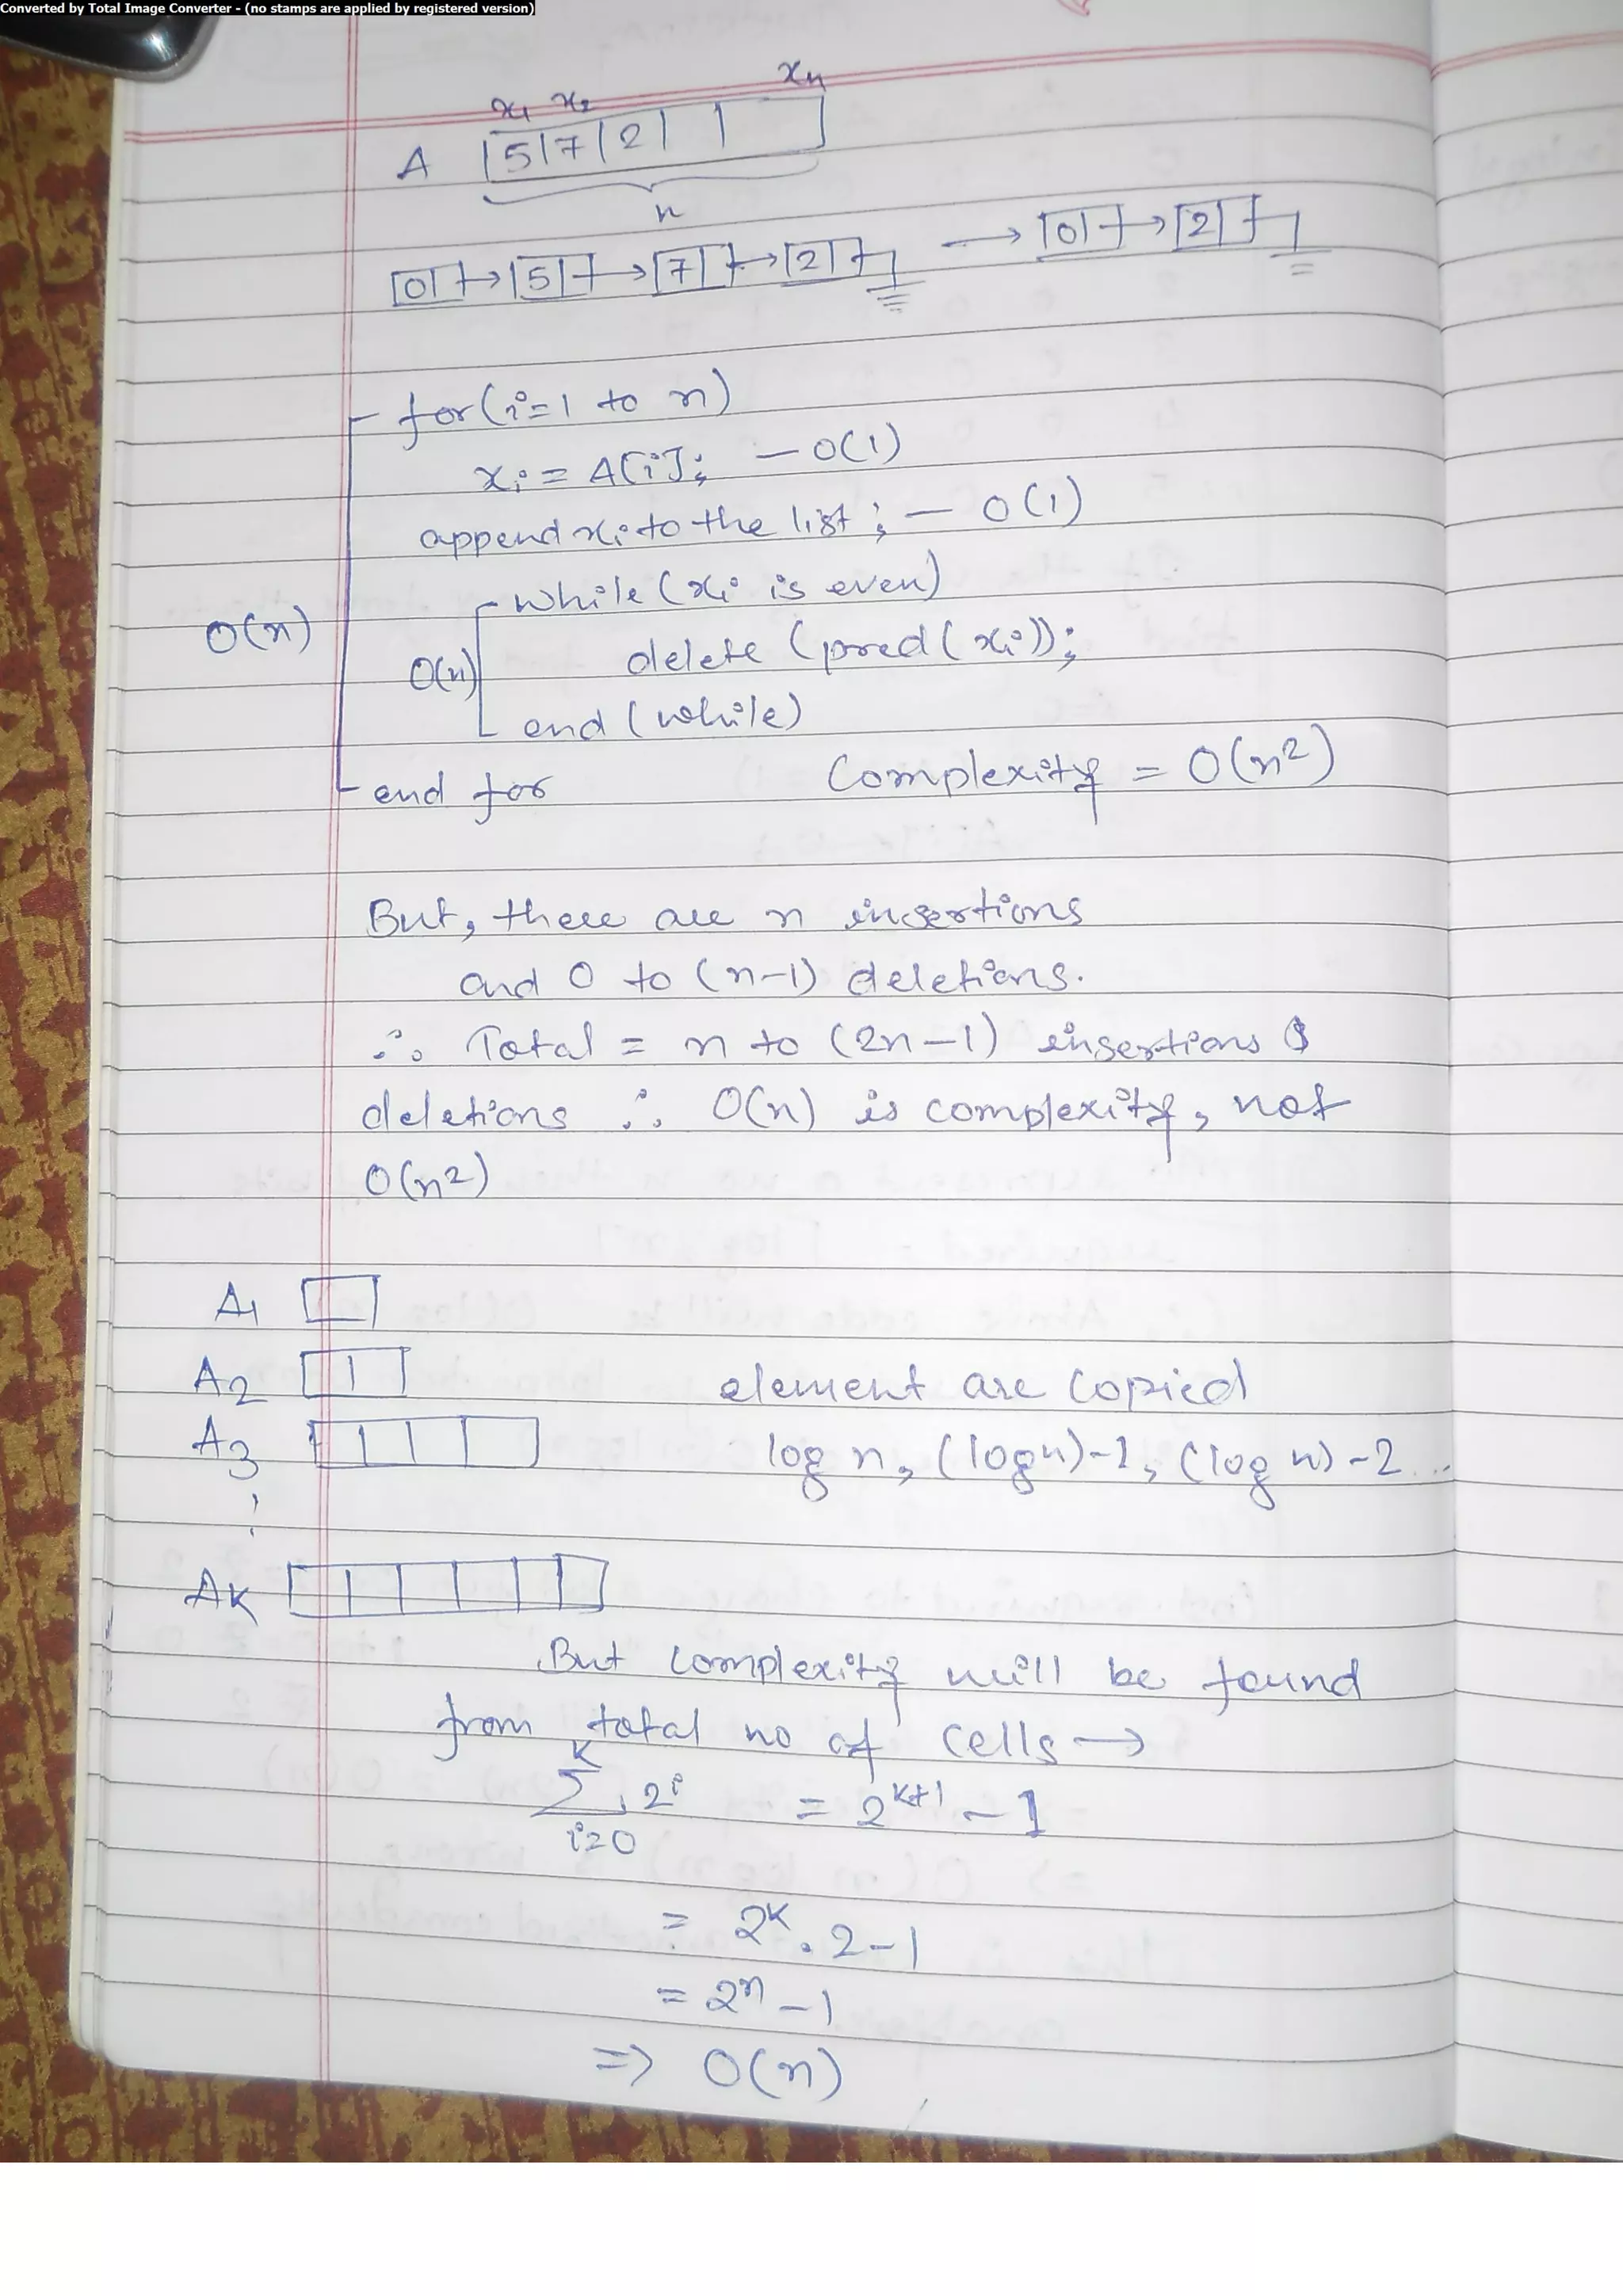 Converted by Total Image Converter - (no stamps are applied by registered version)
x1 x2 xn
A 5 7 2
n
0 → 5 → 7 → 2 → 0 → 2
for (i=1 to n)
xi = A[i]; — O(1)
append xi to the list; — O(1)
while (xi is even)
O(n)
delete (pred(xi));
O(n)
end (while)
Complexity = O(n²)
end for
But, there are n insertions
and 0 to (n-1) deletions.
∴ Total = n to (2n-1) insertions &
deletions ∴ O(n) is complexity, not
O(n²)
A1
A2 element are copied
A3 log n, (log n)-1, (log n)-2 ...
AK
But complexity will be found
from total no of cells →
K
Σ 2^i = 2^(K+1) - 1
i=0
= 2^K . 2 - 1
= 2^n - 1
=> O(n)